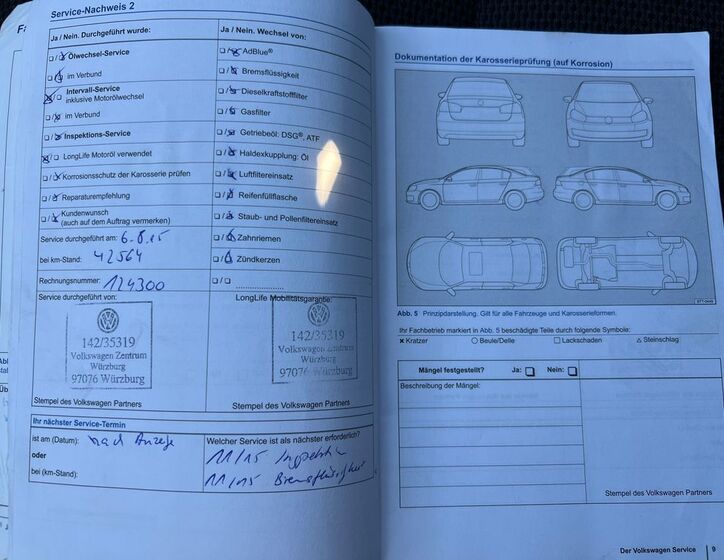 Service-Nachweis 2
Ja / Nein. Durchgeführt wurde:
Ja / Nein. Wechsel von:
Ölwechsel-Service
AdBlue®
im Verbund
Bremsflüssigkeit
Intervall-Service
inklusive Motorölwechsel
Dieselkraftstofffilter
im Verbund
Gasfilter
Inspektions-Service
Getriebeöl: DSG®, ATF
LongLife Motoröl verwendet
Haldexkupplung: Öl
Korrosionsschutz der Karosserie prüfen
Luftfiltereinsatz
Reparaturempfehlung
Reifenfüllflasche
Kundenwunsch
(auch auf dem Auftrag vermerken)
Staub- und Pollenfiltereinsatz
Service durchgeführt am: 6.8.15
Zahnriemen
bei km-Stand: 42564
Zündkerzen
Rechnungsnummer: 124300
Service durchgeführt von:
LongLife Mobilitätsgarantie:
142/35319
Volkswagen Zentrum
Würzburg
97076 Würzburg
142/35319
Volkswagen Zentrum
Würzburg
97076 Würzburg
Stempel des Volkswagen Partners
Stempel des Volkswagen Partners
Ihr nächster Service-Termin
ist am (Datum): nach Anzeige
oder
bei (km-Stand):
Welcher Service ist als nächster erforderlich?
11/15 Inspektion
11/15 Bremsflüssigkeit
Dokumentation der Karosserieprüfung (auf Korrosion)
Abb. 5 Prinzipdarstellung. Gilt für alle Fahrzeuge und Karosserieformen.
Ihr Fachbetrieb markiert in Abb. 5 beschädigte Teile durch folgende Symbole:
× Kratzer ○ Beule/Delle □ Lackschaden △ Steinschlag
Mängel festgestellt? Ja: Nein:
Beschreibung der Mängel:
Stempel des Volkswagen Partners
Der Volkswagen Service 9